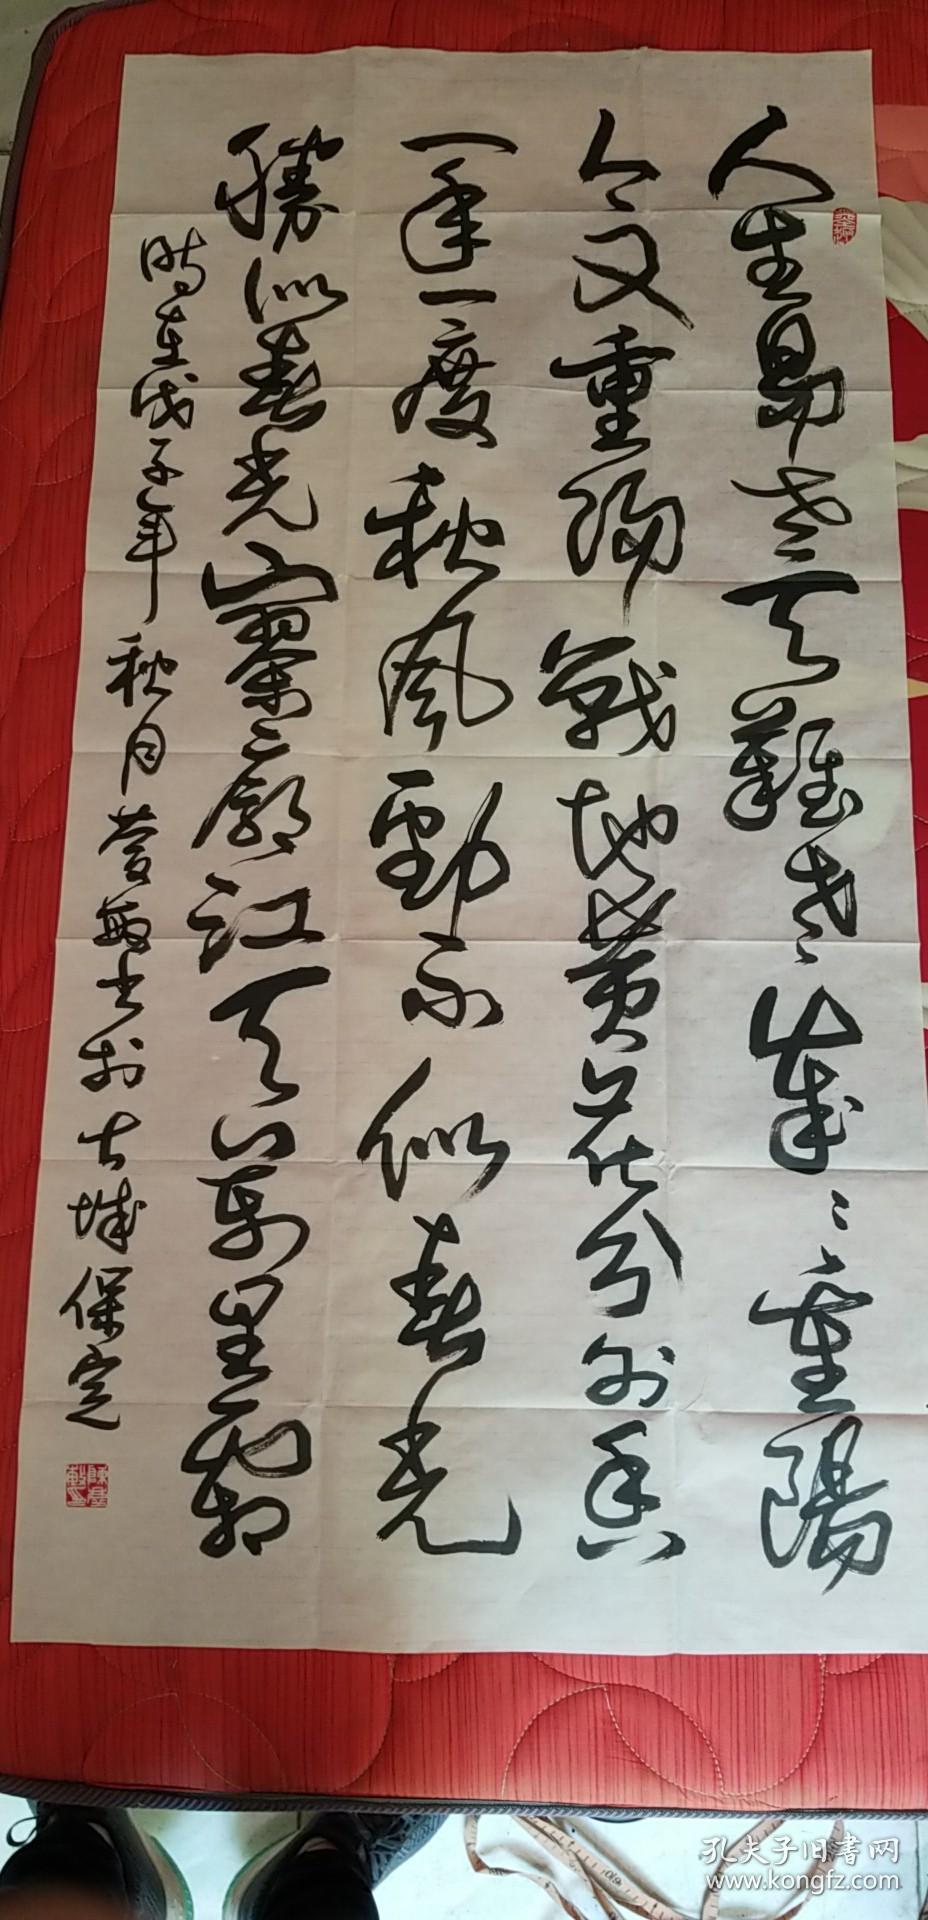 人生易老天難老歲〻重陽
今又重陽戰地黄花分外香
一年一度秋風勁不似春光
勝似春光寥〻廓江天萬里霜
時在戊子年秋月 敬書於古城保定
孔夫子旧书网
www.kongfz.com